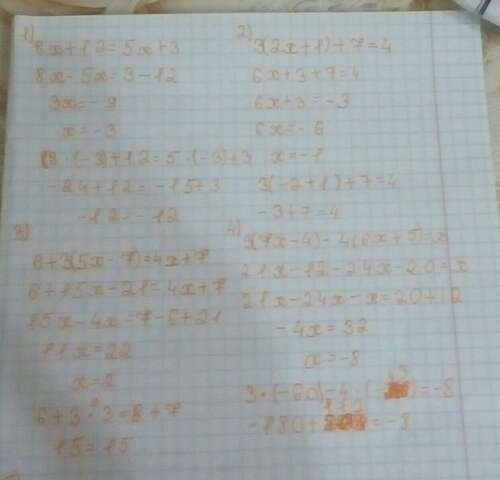 1)
8x+12=5x+3
8x-5x=3-12
3x=-9
x=-3
8·(-3)+12=5·(-3)+3
-24+12=-15+3
-12=-12
2)
3(2x+1)+7=4
6x+3+7=4
6x+3=-3
6x=-6
x=-1
3(-2+1)+7=4
-3+7=4
3)
6+3(5x-7)=4x+7
6+15x-21=4x+7
15x-4x=7-6+21
11x=22
x=2
6+3·3=8+7
15=15
4)
3(7x-4)-4(6x+5)=x
21x-12-24x-20=x
21x-24x-x=20+12
-4x=32
x=-8
3·(-60)-4·(-43)=-8
-180+172=-8